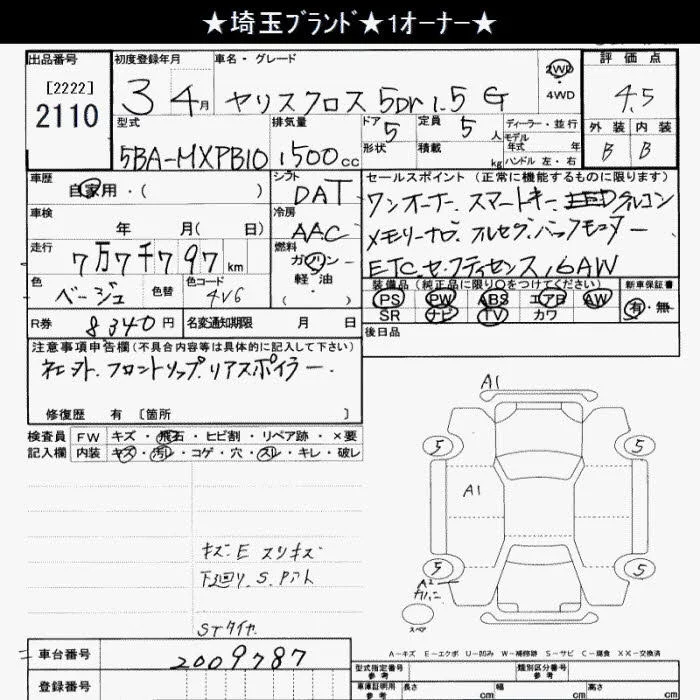 ★埼玉ﾌﾞﾗﾝﾄﾞ★1オーナー★
出品番号
[2222]
2110
初度登録年月
3 4月
車名・グレード
ヤリスクロス 5DR 1.5 G
2WD
4WD
評価点
4.5
外装 内装
B B
型式
5BA-MXPB10
排気量
1500cc
ドア 5
形状
定員 5 人
積載 kg
ディーラー・並行
モデル
年式 年
ハンドル 左・右
車歴
自家用・( )
車検
年 月( 日)
走行
7万7千797km
色
ベージュ
色替
色コード
4V6
シフト
DAT
冷房
AAC
燃料
ガソリン
軽油
( )
セールスポイント(正常に機能するものに限ります)
ワンオーナー.スマートキー.LEDクルコン
メモリーナビ.フルセグ.バックモニター
ETC.セーフティセンス,16AW
装備品(純正品に限り○をつけてください)
PS PW ABS エアB AW
SR ナビ TV カワ
新車保証書
有・無
R券
8340円
名変通知期限 月 日
後日品
注意事項申告欄(不具合内容等は具体的に記入して下さい)
社外.フロントリップ.リアスポイラー.
修復歴 有 〔箇所 〕
検査員
記入欄
FW キズ・飛石・ヒビ割・リペア跡・×要
内装 キズ・汚レ・コゲ・穴・スレ・キレ・破レ
キズ E スリキズ
下廻り.S.
STタイヤ
A1
5 5
A1
5 5
A2
スペア
A-キズ E-エクボ U-凹み W-補修跡 S-サビ C-腐食 XX-交換済
車台番号
2009787
登録番号
型式指定番号
参考
類別区分番号
参考
車庫証明用
参考
長さ cm
幅 cm
高さ cm